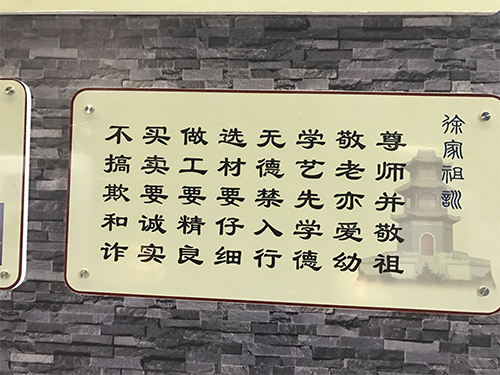 徐家祖训
尊师并敬祖
敬老亦爱幼
学艺先学德
无德禁入行
选材要仔细
做工要精良
买卖要诚实
不搞欺和诈